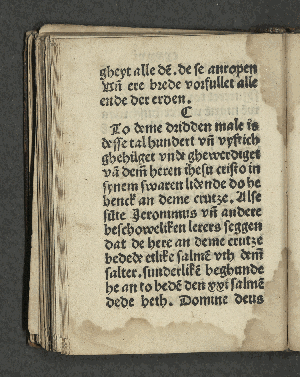 gheyt alle dē. de se anropen
Vn̄ ere brede vorfullet alle
ende der erden.
C
To deme drüdden male is
desse tal hundert vn̄ vyftich
ghehilget vnde ghewerdiget
vā dem̄ heren ihesu cristo in
synem swaren lidende do he
henck an deme crutze. Alse
sūte Jeronimus vn̄ andere
beschoweliken lerers seggen
dat de here an deme crutze
bedede etlike salmē vth dem̄
salter. sunderlikē beghunde
he an to bedē den xxi salmē
dede heth. Domine deus